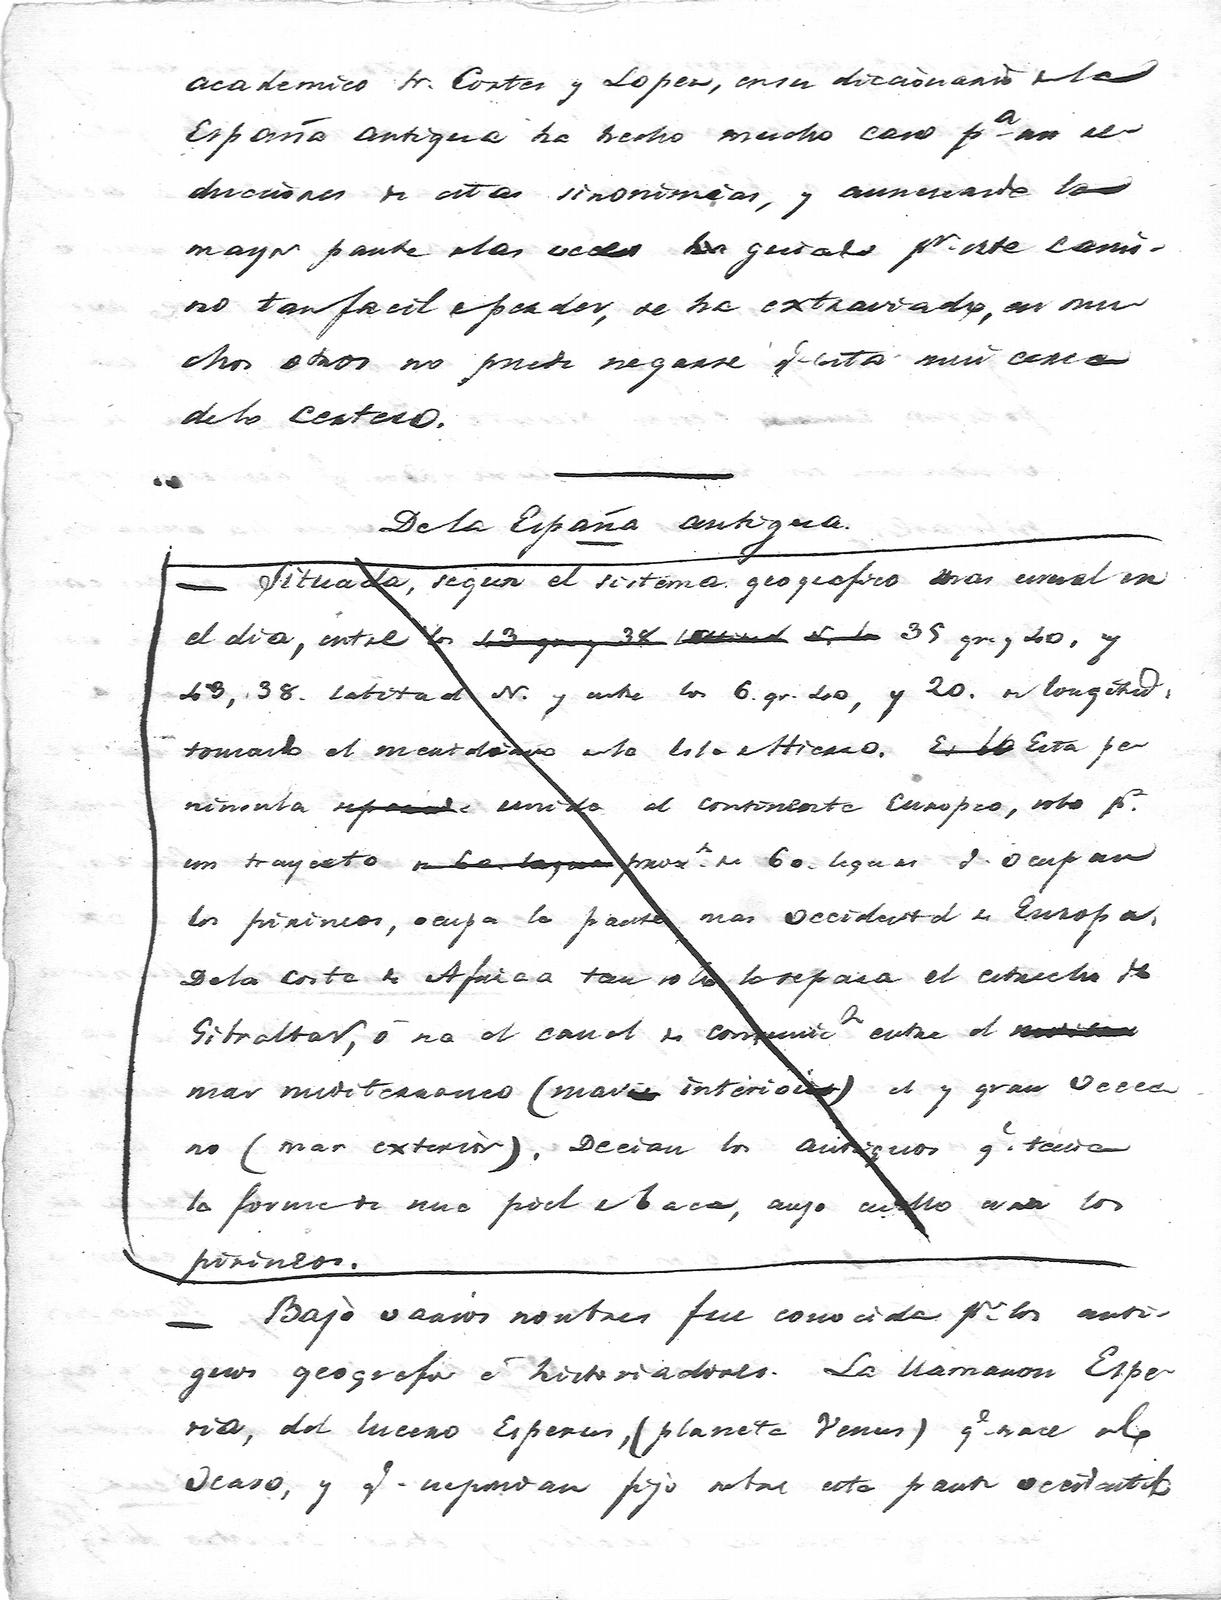 academico Sr. Cortes y Lopez, en su diccionario de la
España antigua ha hecho mucho caso pa. sus re-
ducciones de estas sinonimias, y aunque de la
mayor parte de las veces ha guiado pr. este cami-
no tan facil de perder, se ha extraviado, en mu
chos otros no puede negarse q. esta mui cerca
de lo certero.
De la España antigua.
— Situada, segun el sistema geografico mas usual en
el dia, entre los 43 gr. y 38 latitud N. 35 gr. y 40, y
43, 38. latitud N. y entre los 6. gr. 40, y 20. de longitud,
tomando el meridiano de la Isla de Hierro. Es la Esta pe
ninsula unida al continente Europeo, solo pr.
un trayecto de 60 leguas prox.te de 60. leguas q. ocupan
los pirineos, ocupa la parte mas occidental de Europa.
De la costa de Africa tan solo la separa el estrecho de
Gibraltar, ó sea el canal de comunicn entre el
mar mediterraneo (mar interior) el y gran Occea
no (mar exterior). Decian los antiguos q. tenia
la forma de una piel de baca, cuyo cuello eran los
pirineos.
— Bajo varios nombres fue conocida pr. los anti-
guos geografos é historiadores. La llamaron Espe
ria, del lucero Esperus, (planeta Venus) q. nace al
Ocaso, y q. suponian fijo sobre esta parte occidental